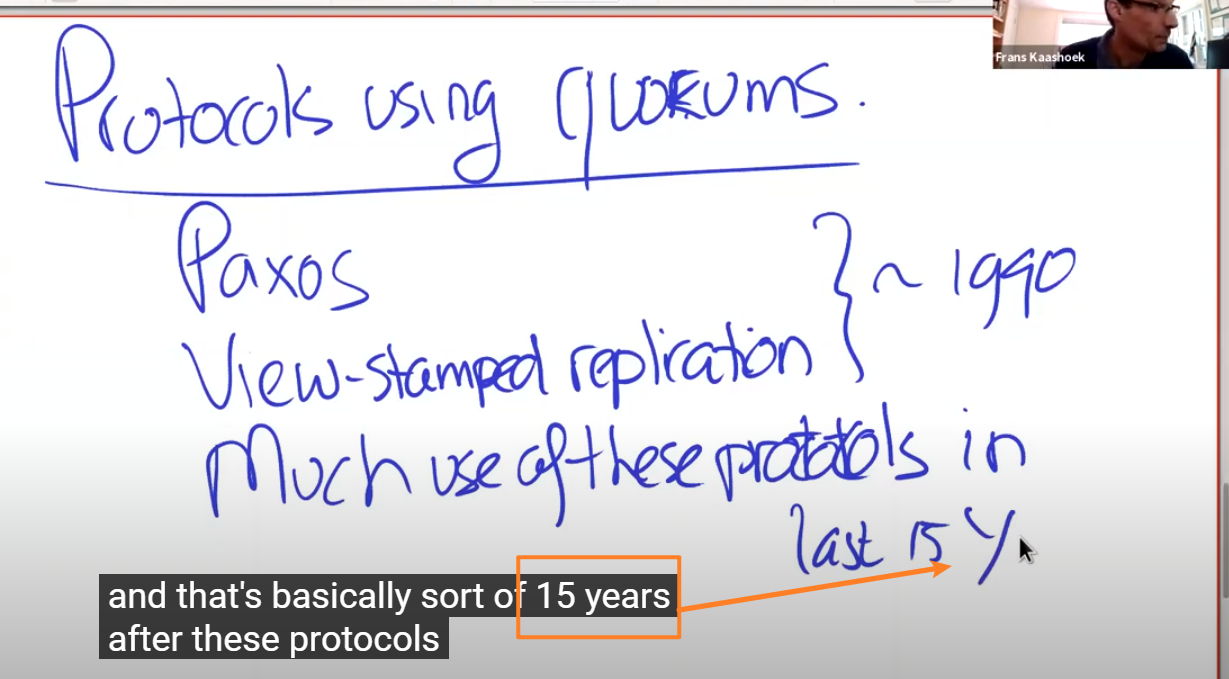 Frans Kaashoek
Protocols using quorums.
Paxos
View-stamped replication
} ~ 1990
Much use of these protocols in
last 15 y
and that's basically sort of 15 years
after these protocols